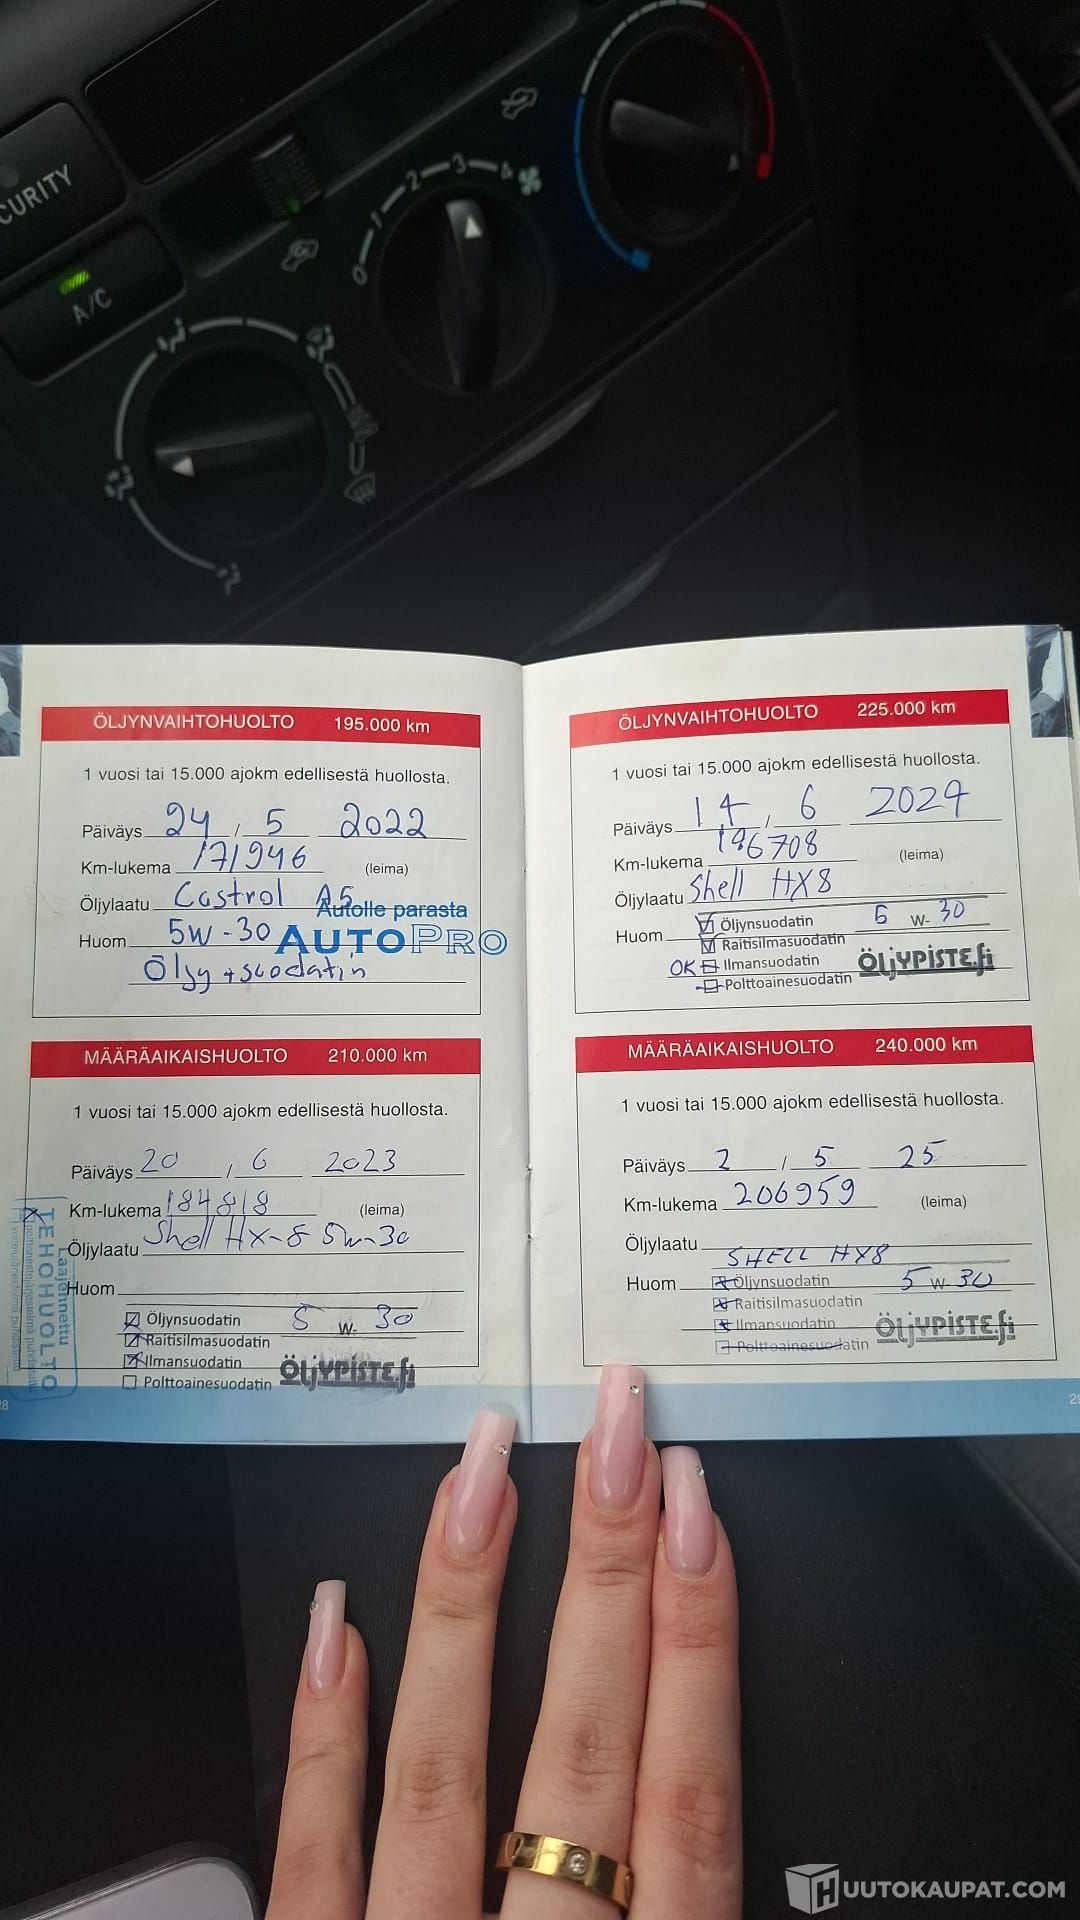 CURITY
A/C
0 1 2 3 4
ÖLJYNVAIHTOHUOLTO 195.000 km
1 vuosi tai 15.000 ajokm edellisestä huollosta.
Päiväys 24 / 5 2022
Km-lukema 171946 (leima)
Öljylaatu Castrol A5
Autolle parasta
Huom 5W-30 AUTOPRO
Öljy + suodatin
MÄÄRÄAIKAISHUOLTO 210.000 km
1 vuosi tai 15.000 ajokm edellisestä huollosta.
Päiväys 20 / 6 2023
Km-lukema 184818 (leima)
Öljylaatu Shell HX-8 5w-30
Huom
Öljynsuodatin 5 W- 30
Raitisilmasuodatin
Ilmansuodatin ÖljyPISTE.fi
Polttoainesuodatin
Laajennettu
TEHOHUOLTO
28
ÖLJYNVAIHTOHUOLTO 225.000 km
1 vuosi tai 15.000 ajokm edellisestä huollosta.
Päiväys 14 / 6 2024
Km-lukema 196708 (leima)
Öljylaatu Shell HX8
Huom Öljynsuodatin 5 W- 30
Raitisilmasuodatin
OK Ilmansuodatin ÖljyPISTE.fi
Polttoainesuodatin
MÄÄRÄAIKAISHUOLTO 240.000 km
1 vuosi tai 15.000 ajokm edellisestä huollosta.
Päiväys 2 / 5 25
Km-lukema 206959 (leima)
Öljylaatu SHELL HX8
Huom Öljynsuodatin 5 W- 30
Raitisilmasuodatin
Ilmansuodatin ÖljyPISTE.fi
Polttoainesuodatin
29
HUUTOKAUPAT.COM